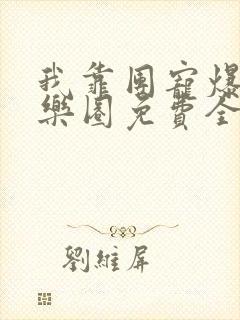 我靠團寵爆
樂園免費全
劉維屏